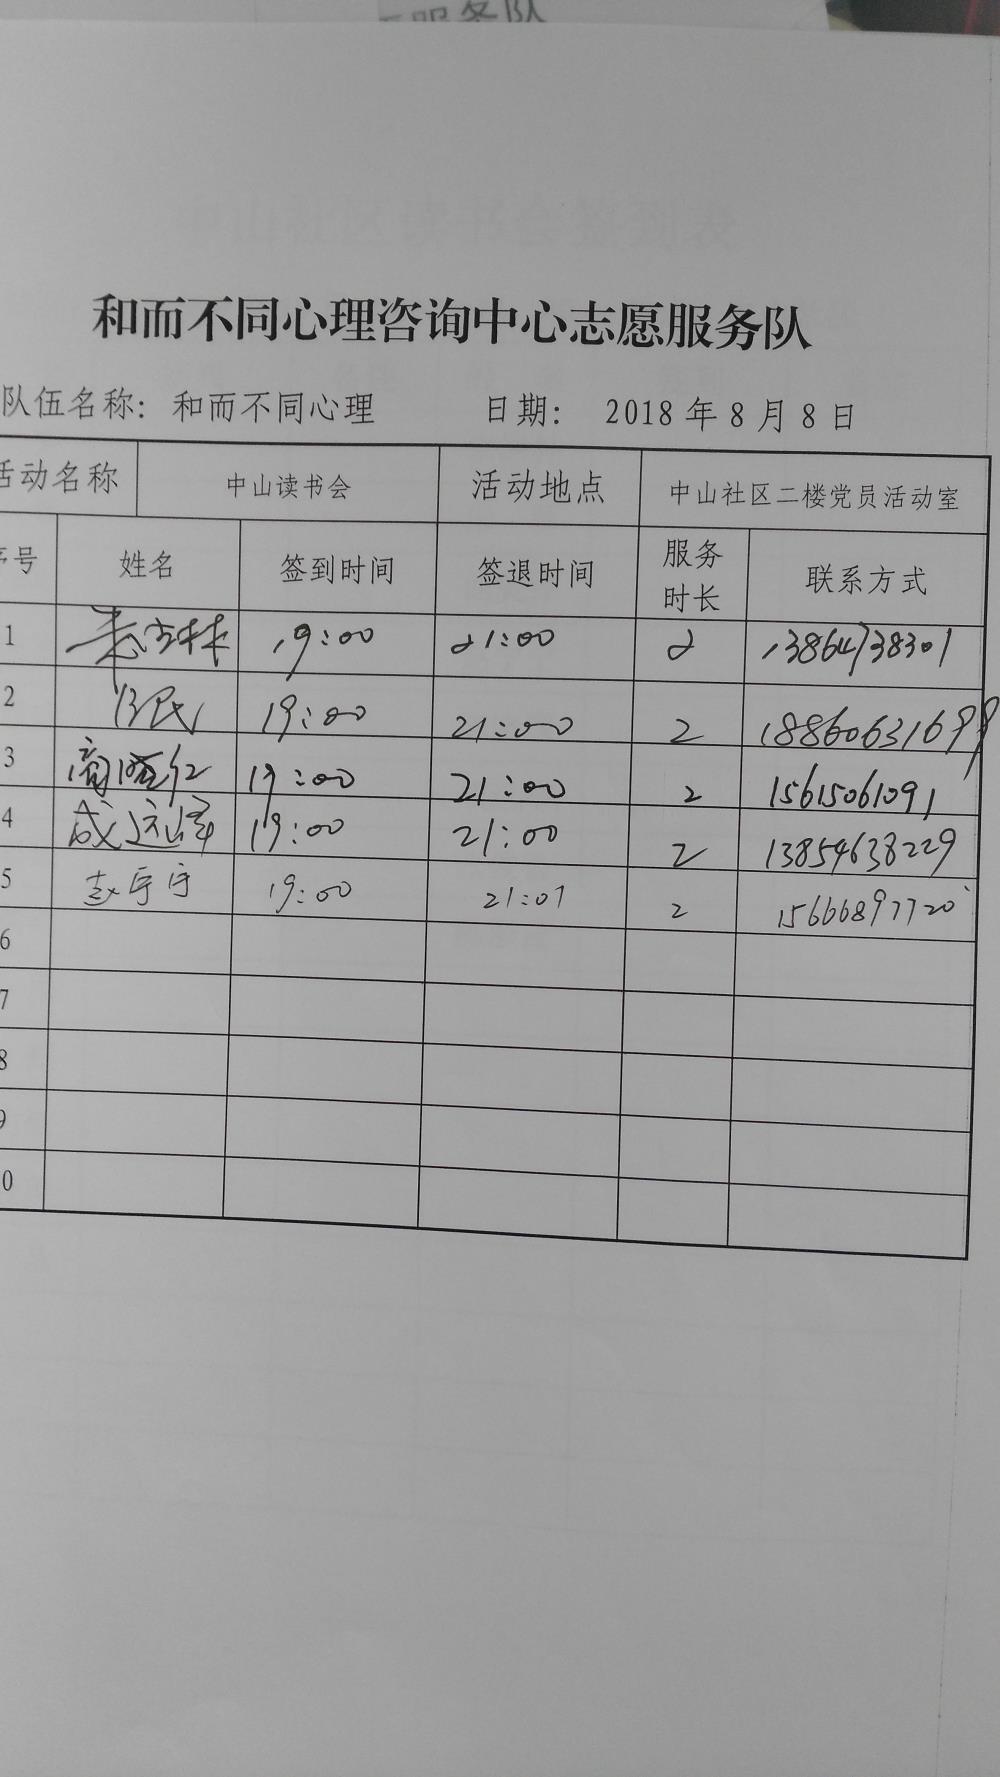 和而不同心理咨询中心志愿服务队
队伍名称: 和而不同心理 日期: 2018年8月8日
活动名称 中山读书会 活动地点 中山社区二楼党员活动室
序号 姓名 签到时间 签退时间 服务时长 联系方式
1 19:00 21:00 2 13864738301
2 任民 19:00 21:00 2 18860631699
3 商晓红 19:00 21:00 2 15615061091
4 成远 19:00 21:00 2 13854638229
5 赵宇宇 19:00 21:01 2 15666897720
6
7
8
9
0